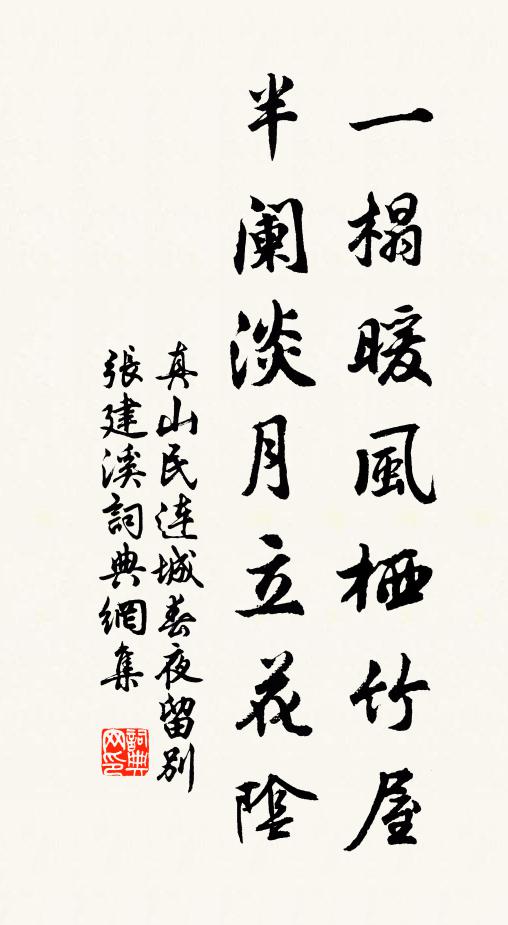 一榻暖風栖竹屋
半阑淡月立花陰
真山民連城春夜留别
張建溪詞典網集
詞典网印